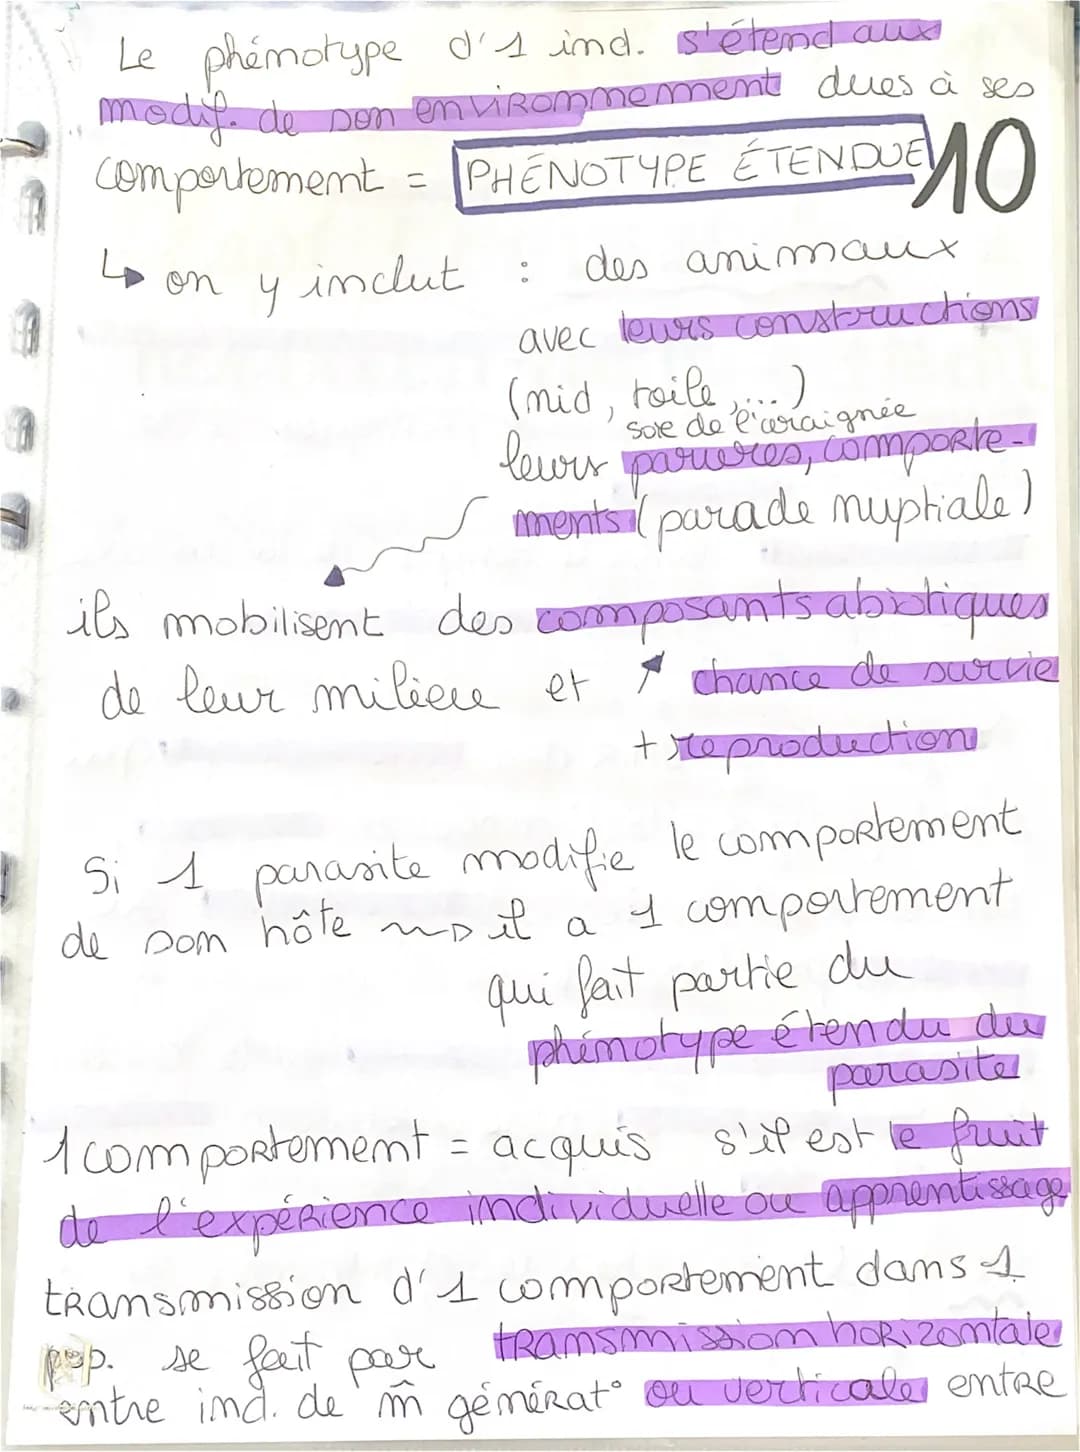 Le phénotype d'1 ind. s'étend aux
modif. de son environnement dues à ses
comportement = PHÉNOTYPE ÉTENDUE 10
↳ on y inclut : des animaux
avec leurs constructions
(nid, toile, ...)
soie de l'araignée
leurs parures, comporte-
ments (parade nuptiale)
ils mobilisent des composants abiotiques
de leur milieu et ↗ chance de survie
+ reproduction
Si 1 parasite modifie le comportement
de son hôte ⇝ il a 1 comportement
qui fait partie du
phénotype étendu du
parasite
1 comportement = acquis s'il est le fruit
de l'expérience individuelle ou apprentissage
transmission d'1 comportement dans 1
pop. se fait par transmission horizontale
entre ind. de m̂ générat° ou verticale entre